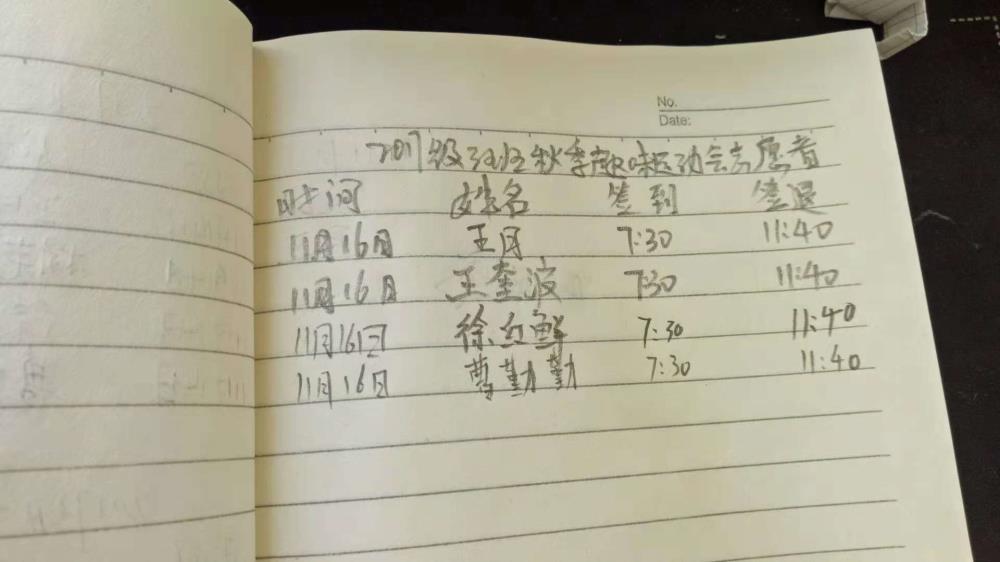 No.
Date:
2017级 班秋季趣味运动会志愿者
时间 姓名 签到 签退
11月16日 王月 7:30 11:40
11月16日 王奎波 7:30 11:40
11月16日 徐红鲜 7:30 11:40
11月16日 曹勤勤 7:30 11:40